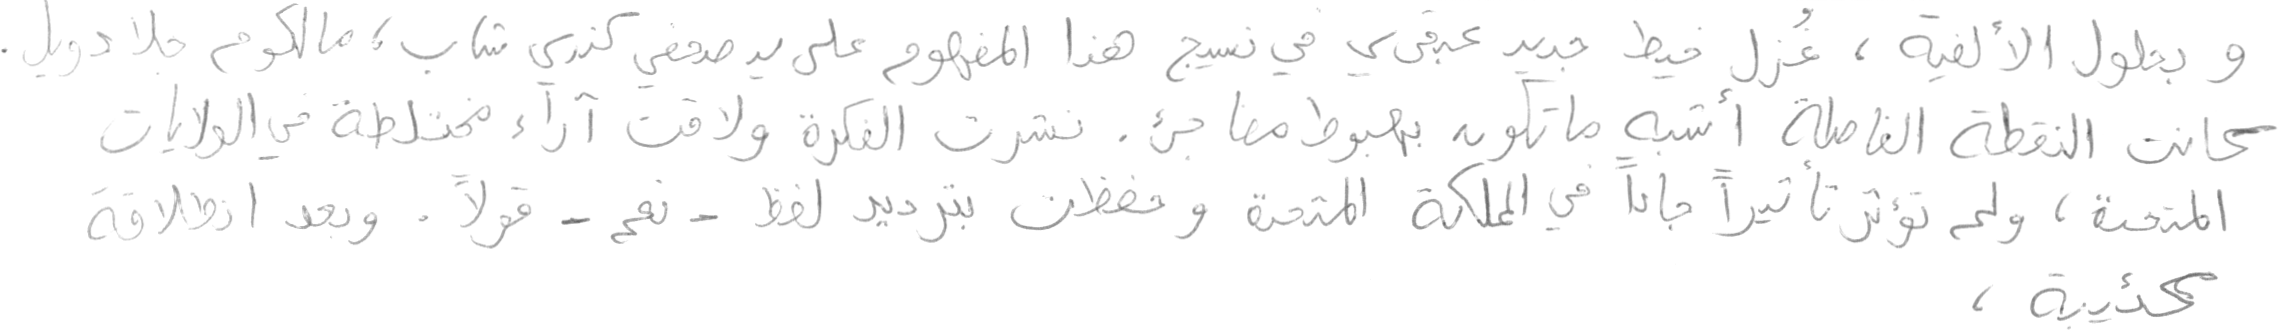 و بحلول الألفية ، غُزل خيط جديد عبقري في نسيج هذا المفهوم على يد صحفي كندي شاب ، مالكوم جلادويل .
كانت النقطة الفاصلة أشبه ما تكون بهبوط مفاجئ . نشرت الفكرة ولاقت آراء مختلطة في الولايات
المتحدة ، ولم تؤثر تأثيراً جاداً في المملكة المتحدة وحفظت بترديد لفظ - نعم - قولاً . وبعد انطلاقة
كئيبة ،